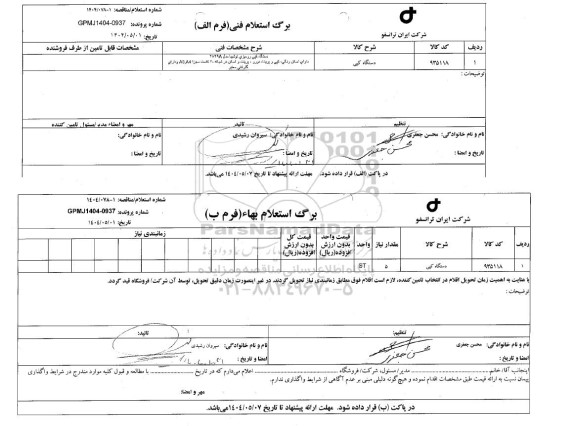 شماره استعلام/مناقصه: ۱-۱۴۰۴/۰۷۸
برگ استعلام فنی(فرم الف)
شماره پرونده: GPMJ1404-0937
تاریخ: ۱۴۰۴/۰۵/۰۱
شرکت ایران ترانسفو
ردیف کد کالا شرح کالا شرح مشخصات فنی مشخصات قابل تامین از طرف فروشنده
۱ ۹۳۵۱۱۸ دستگاه کپی
توضیحات:
تنظیم: تائید: مهر و امضاء مدیر/مسئول تامین کننده
نام و نام خانوادگی: محسن جعفری نام و نام خانوادگی: سیروان رشیدی نام و نام خانوادگی:
تاریخ و امضا: تاریخ و امضا: تاریخ و امضا:
در پاکت (الف) قرار داده شود. مهلت ارائه پیشنهاد تا تاریخ ۱۴۰۴/۰۵/۰۷ می‌باشد.
شماره استعلام/مناقصه: ۱-۱۴۰۴/۰۷۸
برگ استعلام بهاء(فرم ب)
شماره پرونده: GPMJ1404-0937
تاریخ: ۱۴۰۴/۰۵/۰۱
شرکت ایران ترانسفو
ردیف کد کالا شرح کالا مقدار نیاز واحد قیمت واحد بدون ارزش افزوده(ریال) قیمت کل بدون ارزش افزوده(ریال) زمانبندی نیاز
۱ ۹۳۵۱۱۸ دستگاه کپی ۵ ST
ParsNamadData
۰۲۱-۸۸۳۴۹۶۷۰-۵
با عنایت به اهمیت زمان تحویل اقلام در انتخاب تامین کننده، لازم است اقلام فوق مطابق زمانبندی نیاز تحویل گردند. در غیر اینصورت زمان دقیق تحویل، توسط آن شرکت/ فروشگاه قید گردد.
توضیحات:
تنظیم: تائید:
نام و نام خانوادگی: محسن جعفری نام و نام خانوادگی: سیروان رشیدی
امضا و تاریخ: امضا و تاریخ:
اینجانب آقا/خانم مدیر/مسئول، شرکت/فروشگاه اعلام می‌دارم که در تاریخ با مطالعه و قبول کلیه موارد مندرج در شرایط واگذاری
پیمان نسبت به ارائه قیمت طبق مشخصات اقدام نموده و هیچ گونه دلیلی مبنی بر عدم آگاهی از شرایط واگذاری ندارم.
مهر و امضاء:
در پاکت (ب) قرار داده شود. مهلت ارائه پیشنهاد تا تاریخ ۱۴۰۴/۰۵/۰۷ می‌باشد.